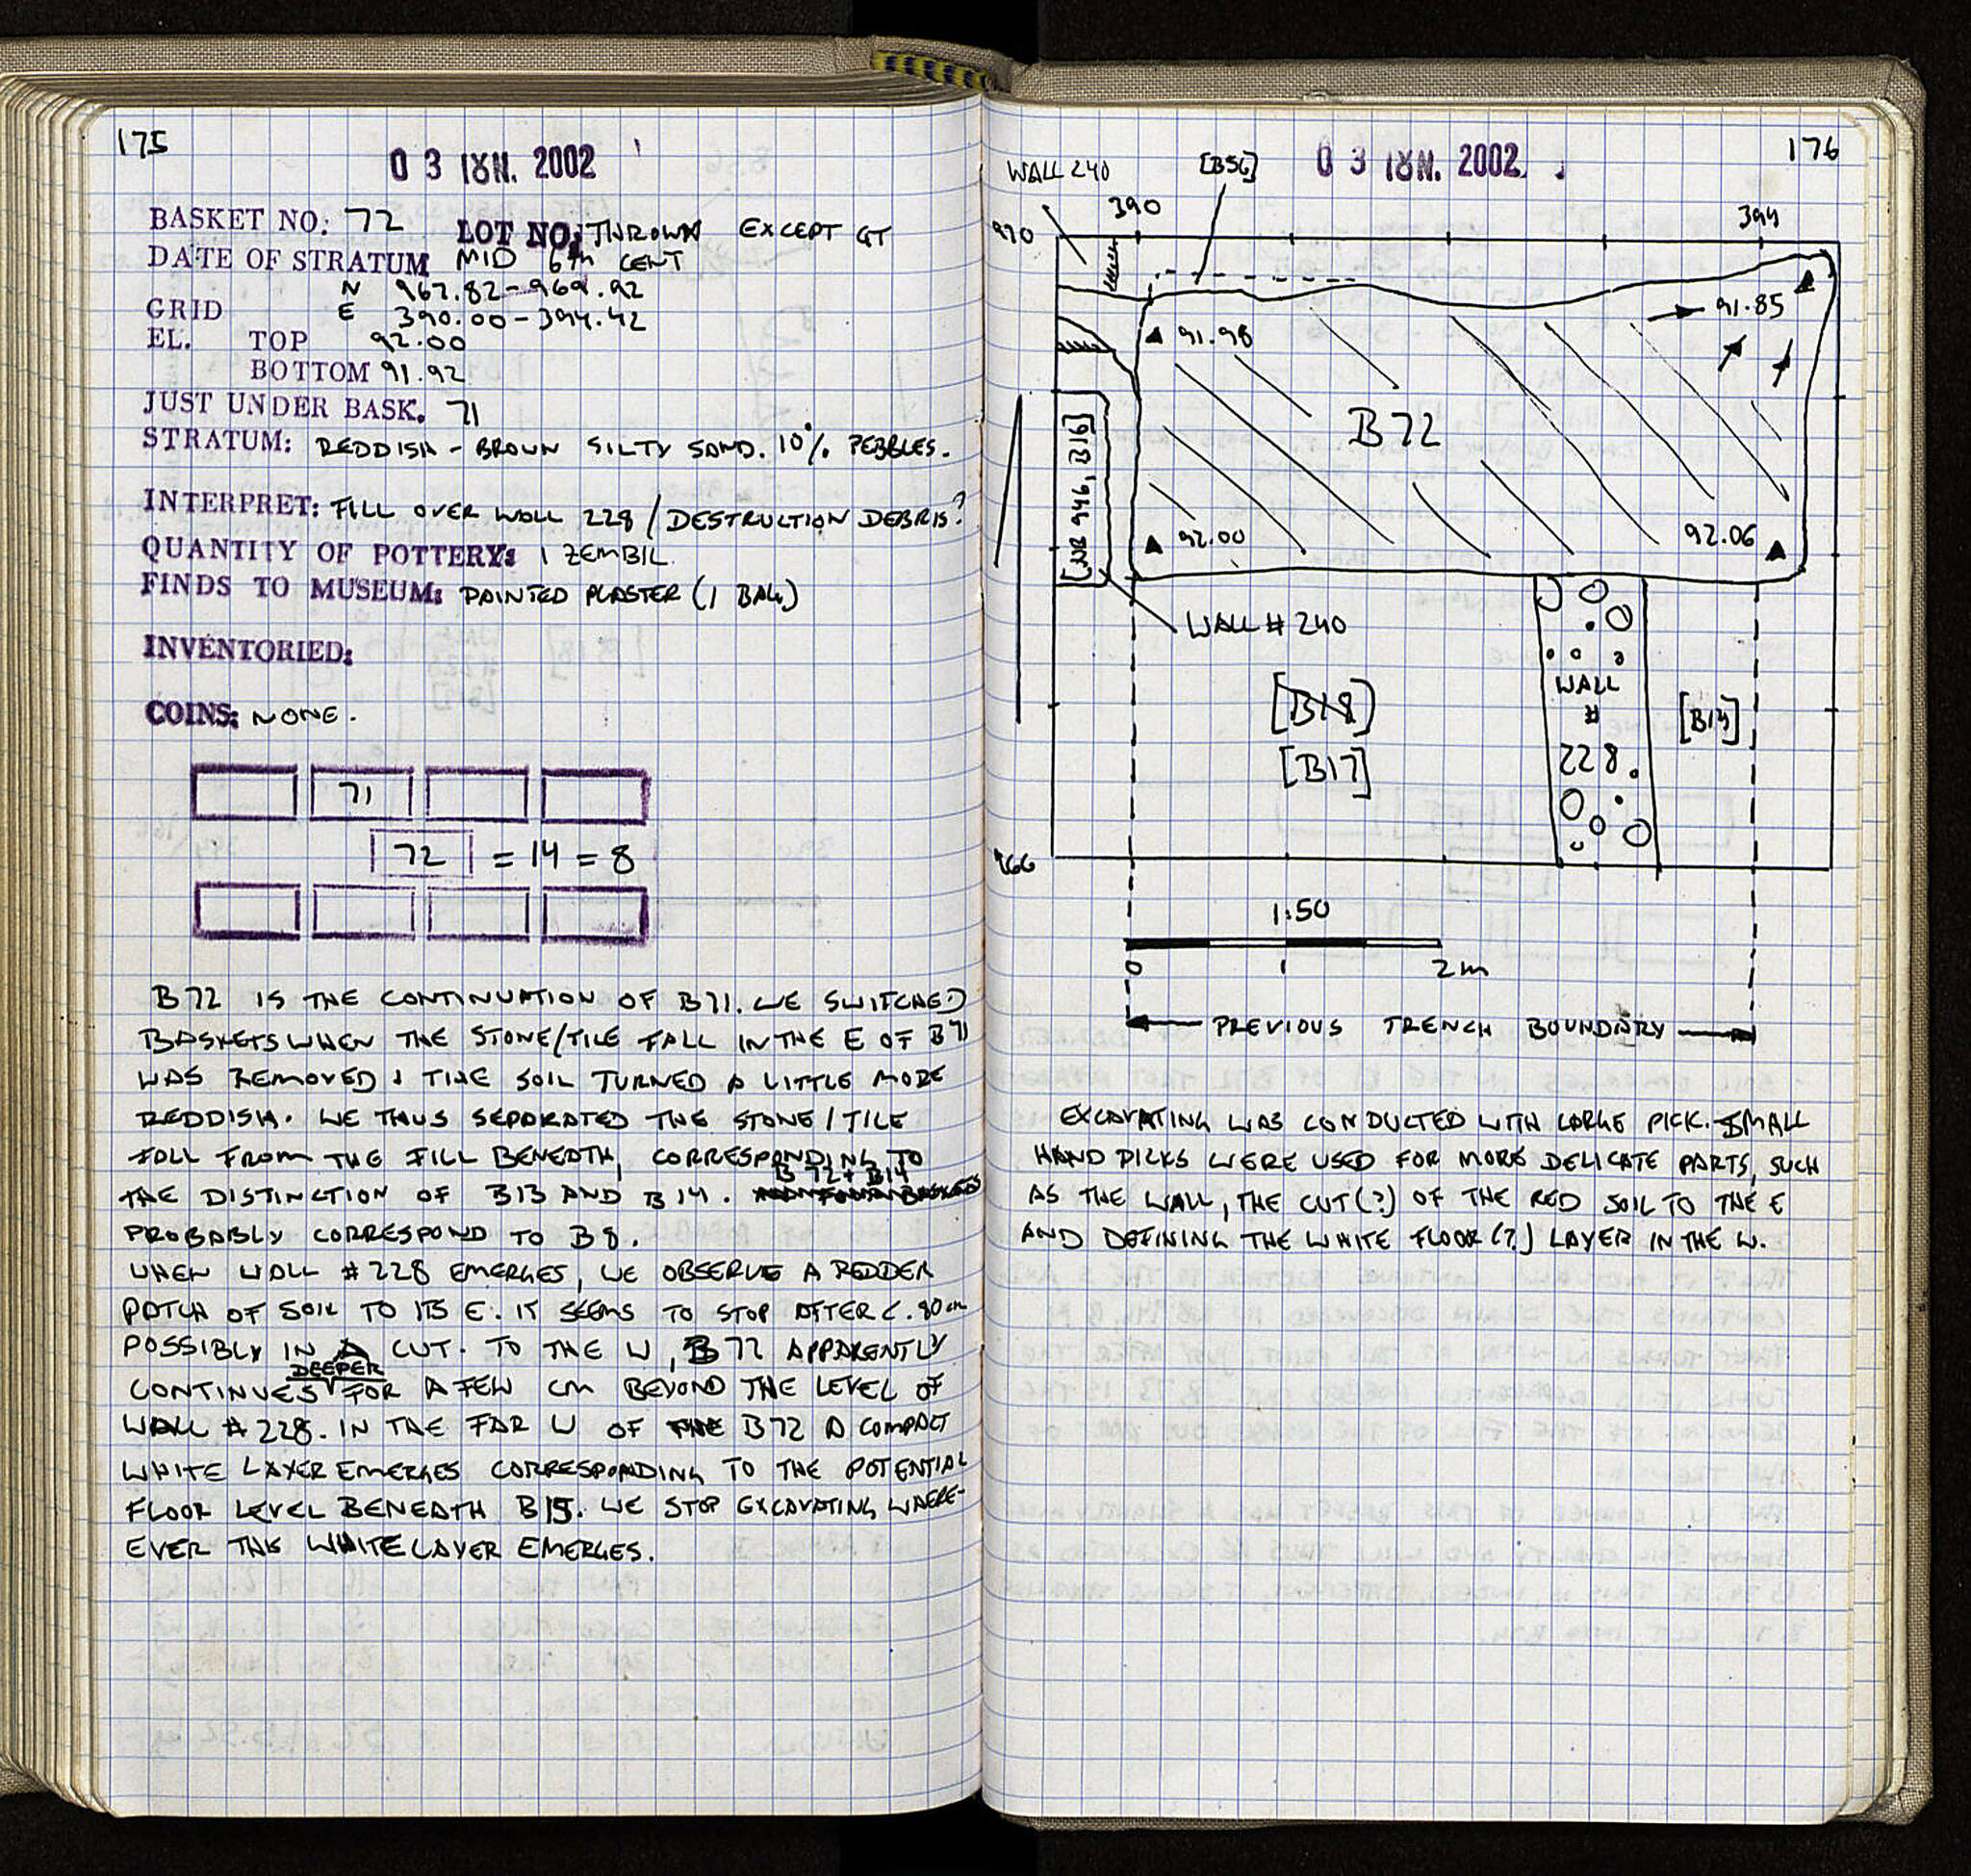 175
03 IOYN. 2002
BASKET NO: 72 LOT NO: THROWN EXCEPT GT
DATE OF STRATUM MID 6TH CENT
N 967.82-969.92
GRID E 390.00-394.42
EL. TOP 92.00
BOTTOM 91.92
JUST UNDER BASK. 71
STRATUM: REDDISH-BROWN SILTY SAND. 10% PEBBLES.
INTERPRET: FILL OVER WALL 228 / DESTRUCTION DEBRIS?
QUANTITY OF POTTERY: 1 ZEMBIL
FINDS TO MUSEUM: PAINTED PLASTER (1 BAG)
INVENTORIED:
COINS: NONE.
71
72 = 14 = 8
B72 IS THE CONTINUATION OF B71. WE SWITCHED
BASKETS WHEN THE STONE/TILE FALL IN THE E OF B71
WAS REMOVED & THE SOIL TURNED A LITTLE MORE
REDDISH. WE THUS SEPARATED THE STONE/TILE
FALL FROM THE FILL BENEATH, CORRESPONDING TO
THE DISTINCTION OF B13 AND B14. B72 + B14
PROBABLY CORRESPOND TO B8.
WHEN WALL #228 EMERGES, WE OBSERVE A REDDER
PATCH OF SOIL TO ITS E. IT SEEMS TO STOP AFTER C. 80 cm
POSSIBLY IN A CUT. TO THE W, B72 APPARENTLY
CONTINUES DEEPER FOR A FEW CM BEYOND THE LEVEL OF
WALL #228. IN THE FAR W OF B72 A COMPACT
WHITE LAYER EMERGES CORRESPONDING TO THE POTENTIAL
FLOOR LEVEL BENEATH B15. WE STOP EXCAVATING WHERE-
EVER THE WHITE LAYER EMERGES.
176
03 IOYN. 2002
WALL 240 [B56]
390 394
970
91.85
91.98
B72
[NB 946, B16]
92.00 92.06
WALL #240
[B18]
[B17]
WALL
#
228
[B14]
966
1:50
0 1 2m
PREVIOUS TRENCH BOUNDARY
EXCAVATING WAS CONDUCTED WITH LARGE PICK. SMALL
HAND PICKS WERE USED FOR MORE DELICATE PARTS, SUCH
AS THE WALL, THE CUT(?) OF THE RED SOIL TO THE E
AND DEFINING THE WHITE FLOOR(?) LAYER IN THE W.